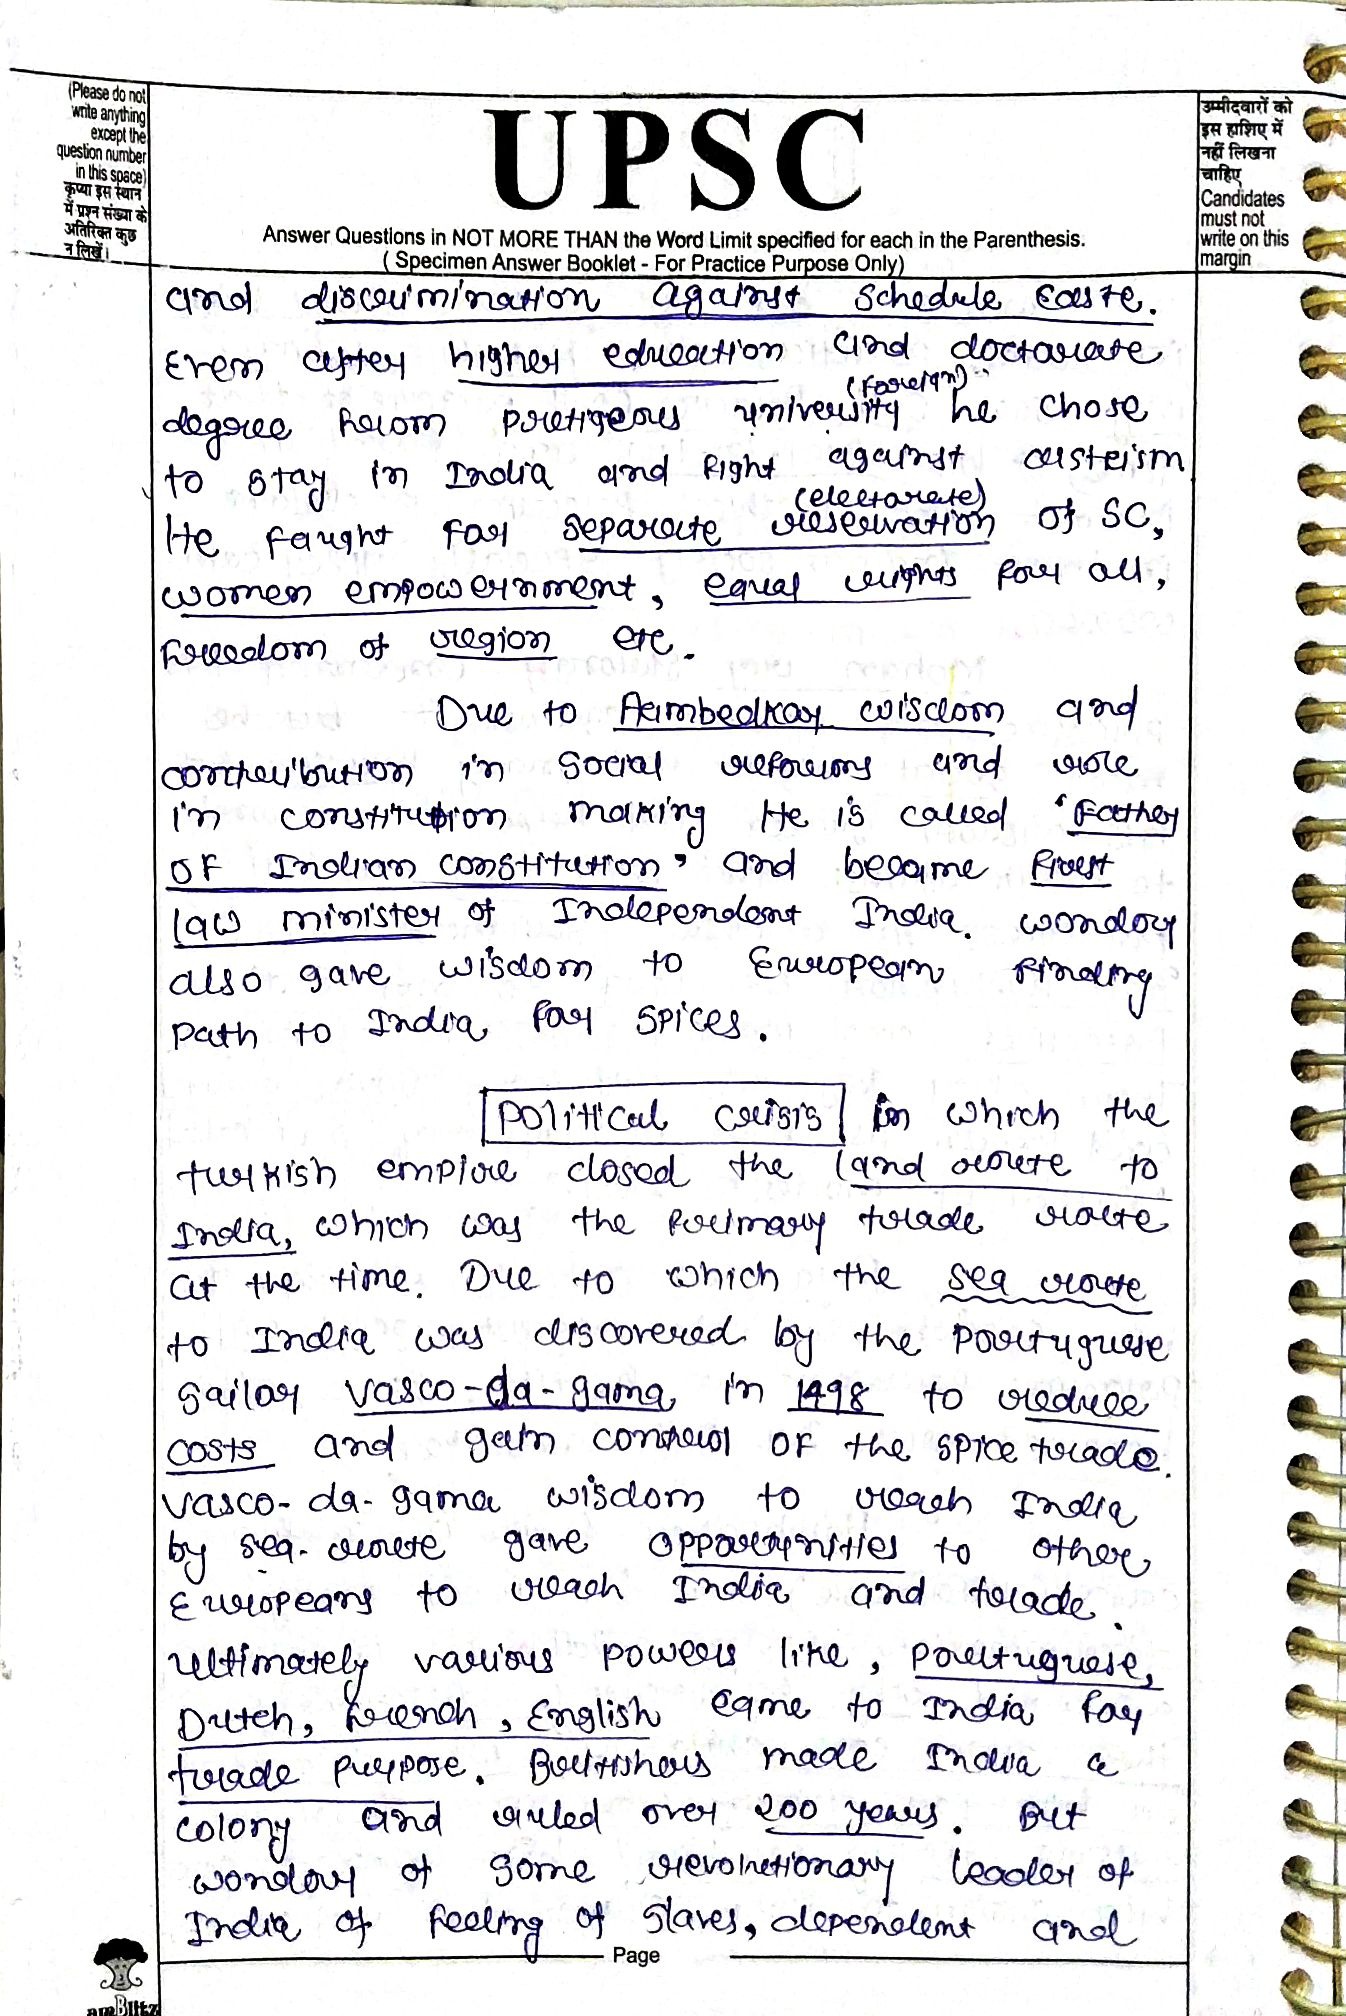 (Please do not
write anything
except the
question number
in this space)
कृप्या इस स्थान
में प्रश्न संख्या के
अतिरिक्त कुछ
न लिखें।
UPSC
Answer Questions in NOT MORE THAN the Word Limit specified for each in the Parenthesis.
( Specimen Answer Booklet - For Practice Purpose Only)
उम्मीदवारों को
इस हाशिए में
नहीं लिखना
चाहिए
Candidates
must not
write on this
margin
and discrimination against Schedule Caste.
Even after higher education and doctorate
(foreign)
degree from pretigeous university he chose
to stay in India and fight against casteism
(electorate)
He faught for separate reservation of SC,
women empowernment, equal rights for all,
freedom of region etc.
Due to Aambedkar wisdom and
contribution in social reforms and role
in constitution making He is called 'Father
of Indian constitution' and became first
law minister of Independent India. wondor
also gave wisdom to European finding
path to India for spices.
Political crisis in which the
turkish empire closed the land route to
India, which was the primary trade route
at the time. Due to which the sea route
to India was discovered by the Portuguese
sailor Vasco-da-gama in 1498 to reduce
costs and gain control of the spice trade.
Vasco-da-gama wisdom to reach India
by sea-route gave opportunities to other
Europeans to reach India and trade.
Ultimately various powers like, Portuguese,
Dutch, French, English came to India for
trade purpose. Britishers made India a
colony and ruled over 200 years. But
wondour of some revolutionary leader of
India of feeling of slaves, dependent and
Page
amBlitz